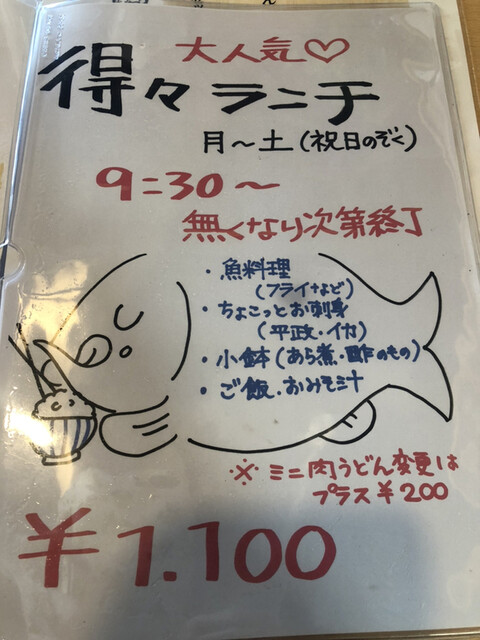 大人気♡
得々ランチ
月〜土(祝日のぞく)
9:30〜
無くなり次第終了
・魚料理
(フライなど)
・ちょこっとお刺身
(平政・イカ)
・小鉢(あら煮・酢のもの)
・ご飯・おみそ汁
※ミニ肉うどん変更は
プラス¥200
¥1.100